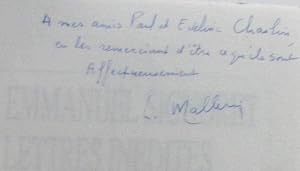 A mes amis Paul et Evelyne
en les remerciant d'être ce qu'ils sont
Affectueusement
EMMANUEL
LETTRES INEDITES